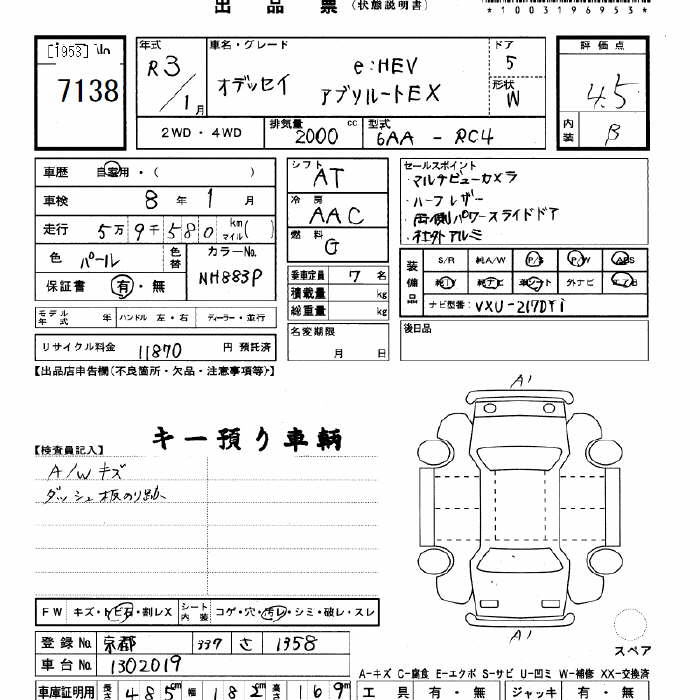 出品票(状態説明書)
*1003196953*
[1953]
7138
年式 R3/1月
車名・グレード オデッセイ e:HEV アブソルートEX
ドア 5
形状 W
評価点 4.5
内装 B
2WD・4WD
排気量 2000 cc
型式 6AA-RC4
車歴 自家用・( )
車検 8年 1月
走行 5万9千580 km マイル( )
色 パール 色替
カラーNo. NH883P
保証書 有・無
モデル年式 年 ハンドル 左・右 ディーラー・並行
リサイクル料金 11870 円 預託済
シフト AT
冷房 AAC
燃料 G
乗車定員 7名
積載量 kg
総重量 kg
名変期限 月 日
セールスポイント
・マルチビューカメラ
・ハーフレザー
・両側パワースライドドア
・社外アルミ
装備品 S/R 純A/W P/S P/W ABS
純TV 純ナビ 革シート 外ナビ エアB
ナビ型番: VXU-217DYi
後日品
【出品店申告欄(不良箇所・欠品・注意事項等)】
キー預り車輌
【検査員記入】
A/Wキズ
ダッシュ板のり跡
A1
A1
スペア
FW キズ・トビ石・割レX シート内装 コゲ・穴・汚レ・シミ・破レ・スレ
登録No. 京都 339 さ 1358
車台No. 1302019
A-キズ C-腐食 E-エクボ S-サビ U-凹ミ W-補修 XX-交換済
車庫証明用 長さ 485cm 幅 182cm 高さ 169
工具 有・無 ジャッキ 有・無